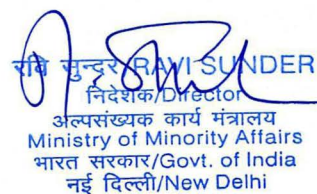 रवि सुन्दर/RAVI SUNDER
निदेशक/Director
अल्पसंख्यक कार्य मंत्रालय
Ministry of Minority Affairs
भारत सरकार/Govt. of India
नई दिल्ली/New Delhi